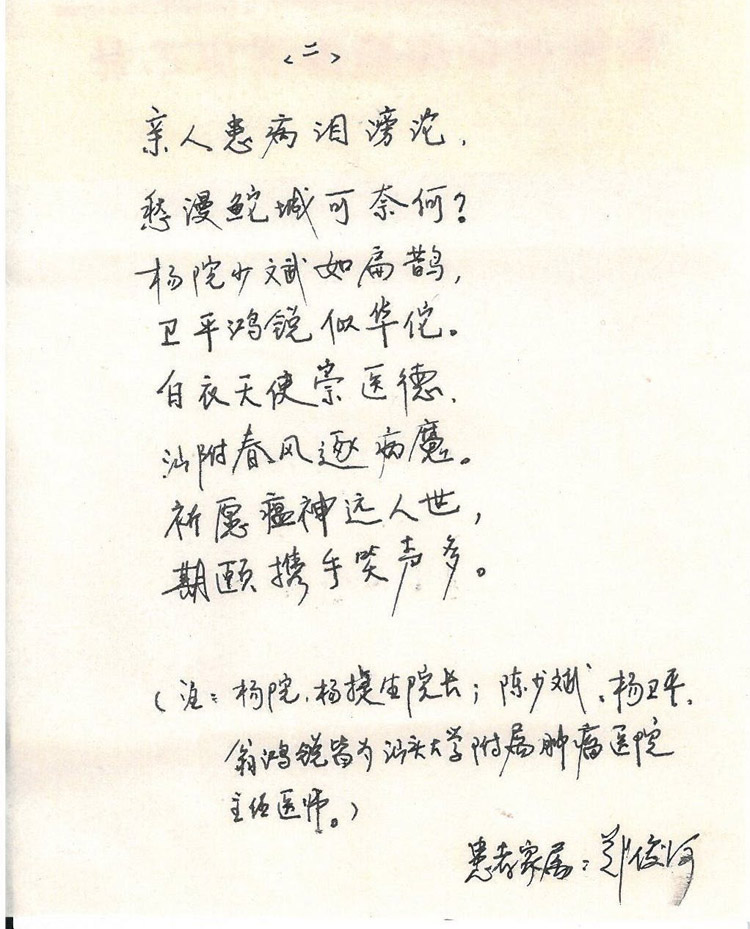 <二>
亲人患病泪滂沱,
愁漫鮀城可奈何?
杨院少斌如扁鹊,
卫平鸿锐似华佗。
白衣天使崇医德,
汕附春风逐病魔。
祈愿瘟神远人世,
期颐携手笑声多。
(注:杨院,杨捷生院长;陈少斌、杨卫平、
翁鸿锐皆为汕头大学附属肿瘤医院
主任医师。)
患者家属:郑俊河